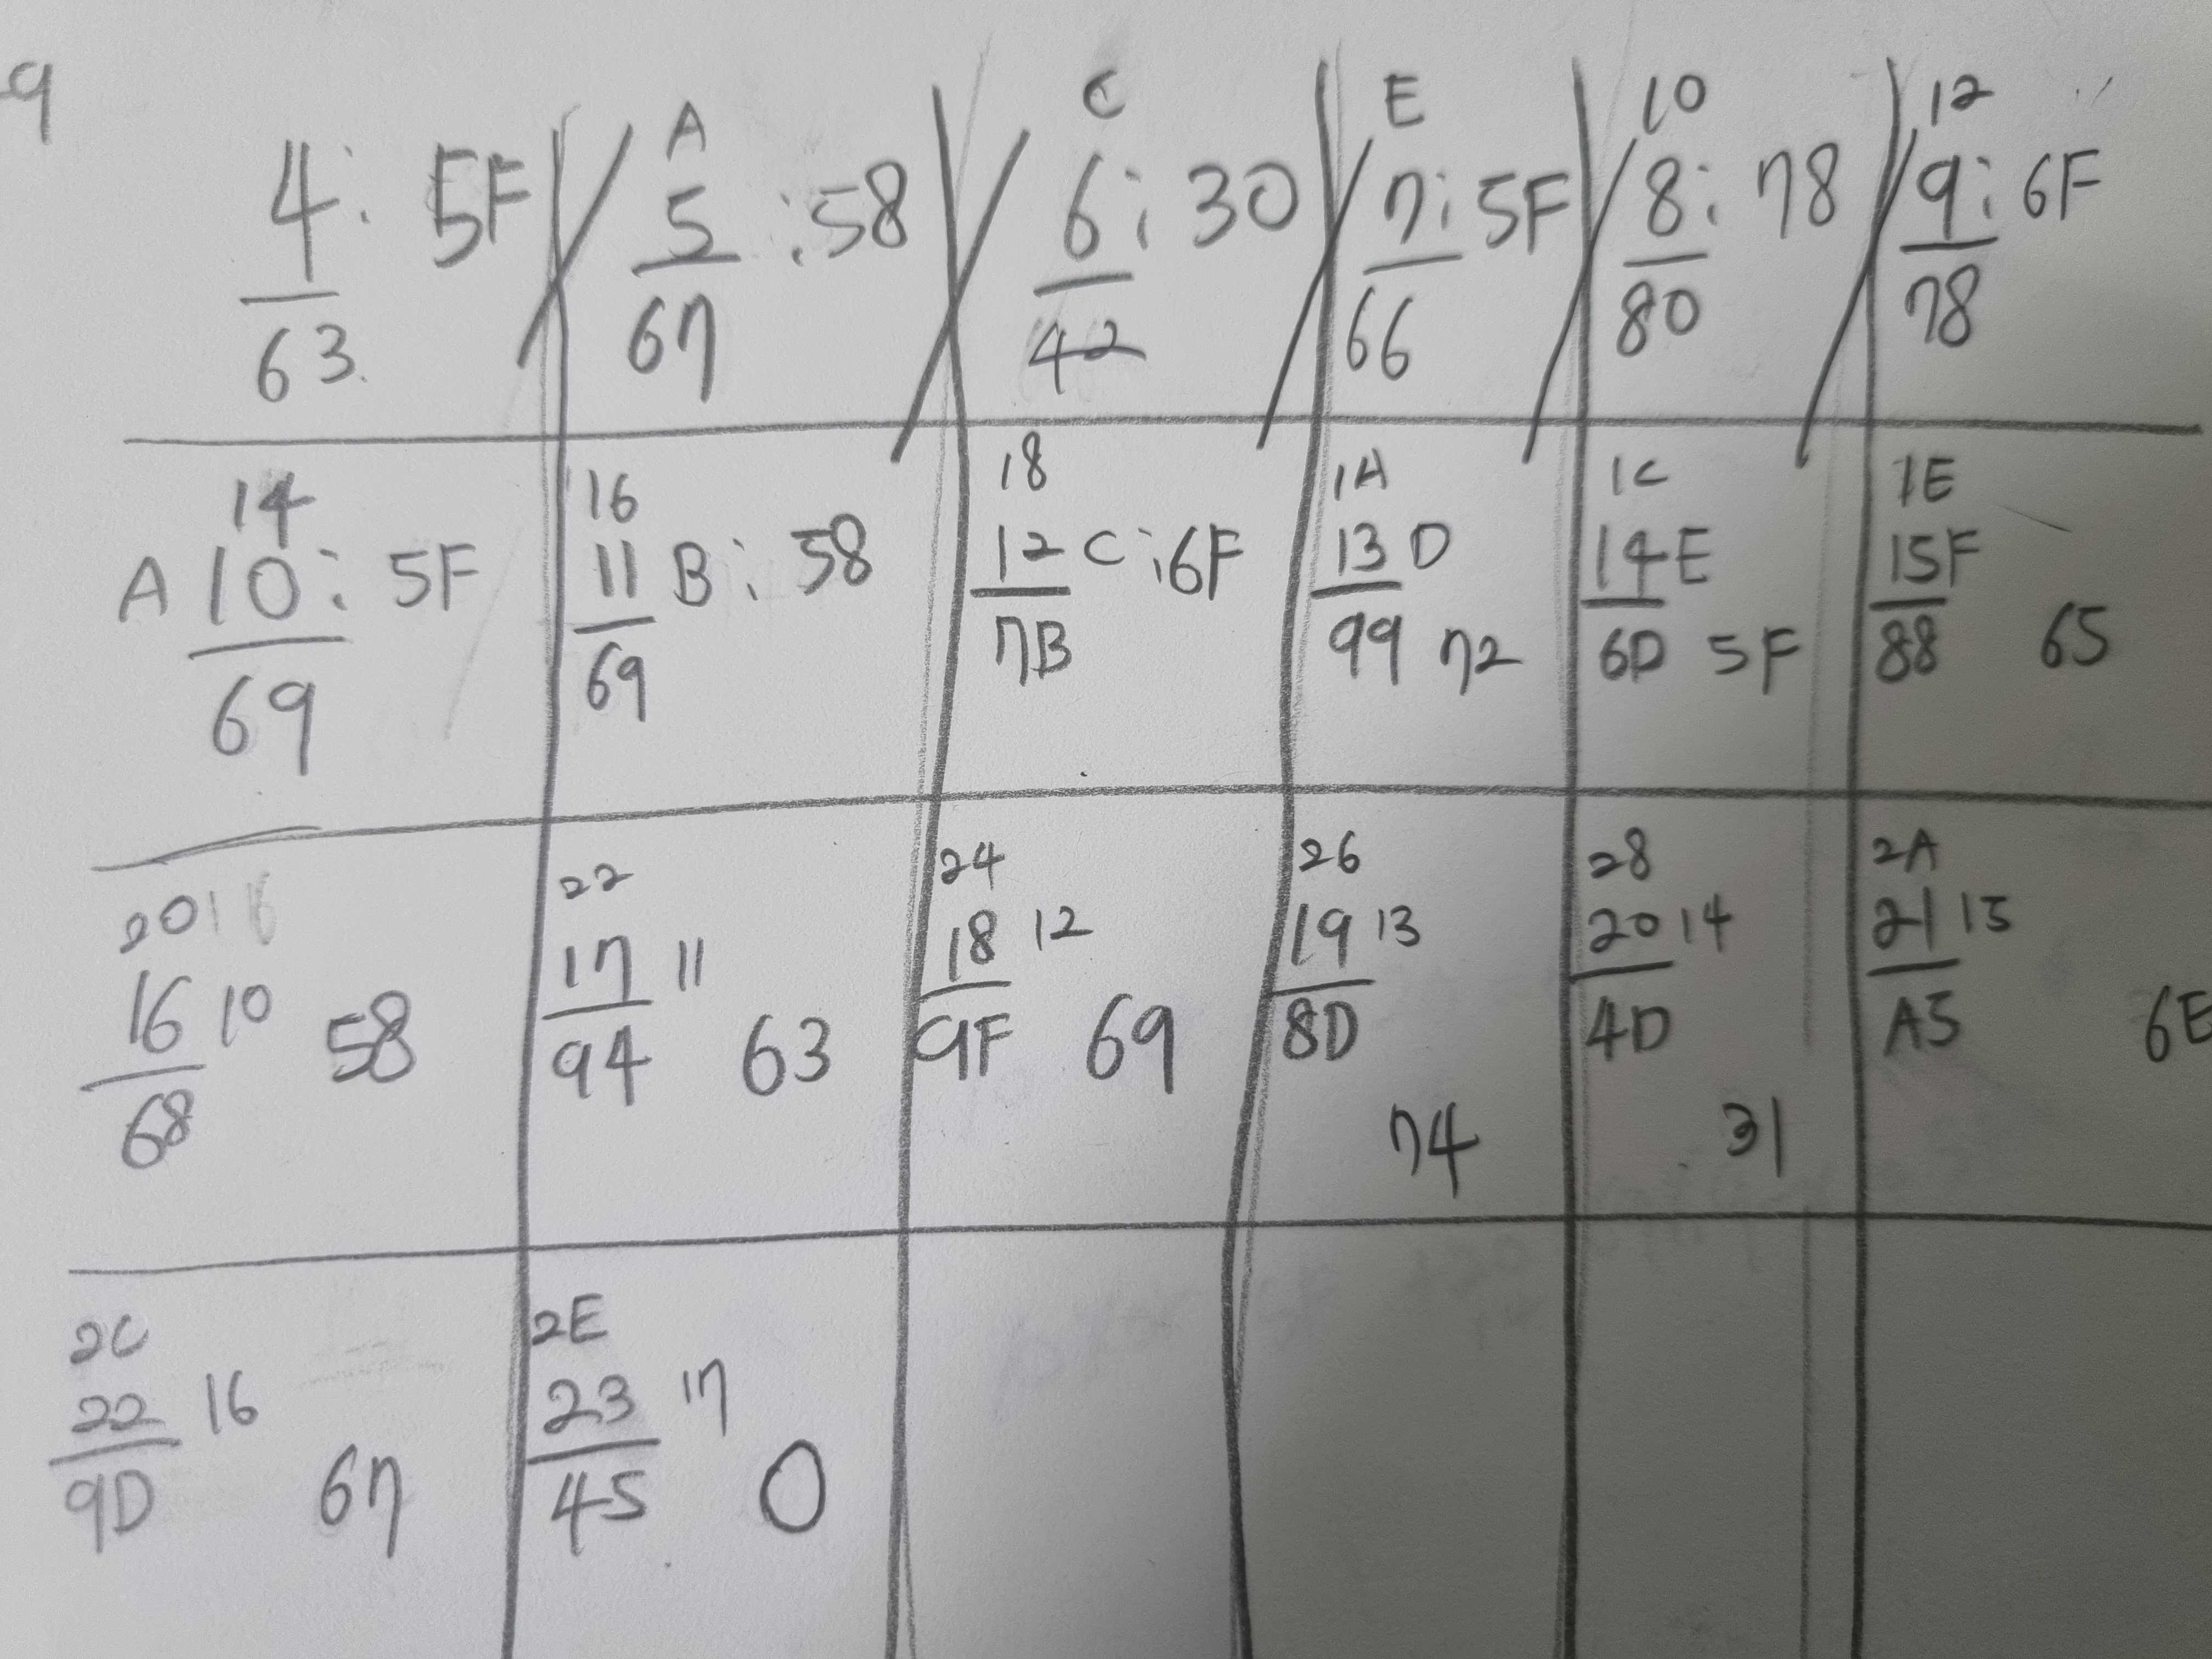 9
4: 5F
63
A
5 :58
67
C
6: 30
42
E
7: 5F
66
10
8: 78
80
12
9: 6F
78
14
A 10: 5F
69
16
11 B: 58
69
18
12 C :6F
7B
1A
13 D
99 72
1C
14 E
6D 5F
1E
15 F
88 65
20
16 10 58
68
22
17 11
94 63
24
18 12
9F 69
26
19 13
8D
74
28
20 14
4D
31
2A
21 15
A5 6E
2C
22 16
9D 67
2E
23 17
45 0